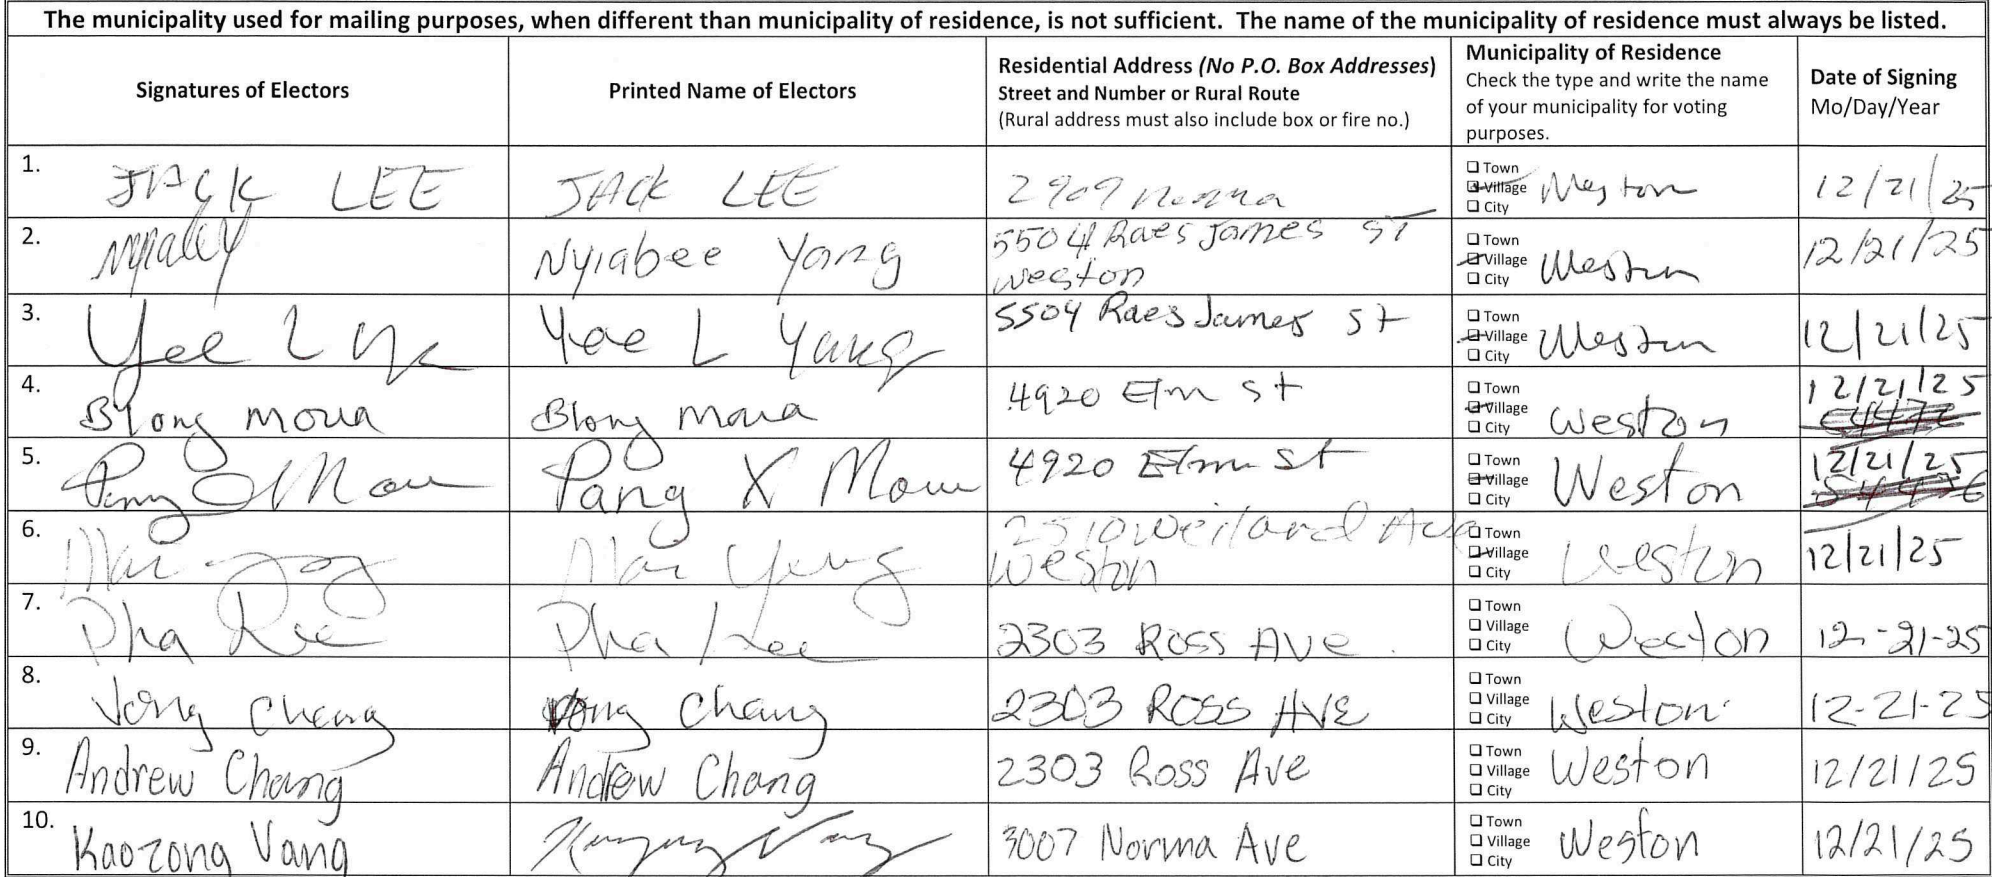 The municipality used for mailing purposes, when different than municipality of residence, is not sufficient. The name of the municipality of residence must always be listed.
Signatures of Electors
Printed Name of Electors
Residential Address (No P.O. Box Addresses)
Street and Number or Rural Route
(Rural address must also include box or fire no.)
Municipality of Residence
Check the type and write the name
of your municipality for voting
purposes.
Date of Signing
Mo/Day/Year
1. JACK LEE JACK LEE 2909 Norma Town Village City Weston 12/21/25
2. Nyiabee Yang 5504 Raes James ST
Weston Town Village City Weston 12/21/25
3. Yee L Yee L Yang 5504 Raes James St Town Village City Weston 12/21/25
4. Blong Moua Blong Moua 4920 Elm St Town Village City Weston 12/21/25
5. Pang X Moua 4920 Elm St Town Village City Weston 12/21/25
6. Mai Mai Yang 2510 Weiland Ave
Weston Town Village City Weston 12/21/25
7. Pha Lee Pha Lee 2303 Ross AVE. Town Village City Weston 12-21-25
8. Vong Chang Vong Chang 2303 ROSS AVE Town Village City Weston 12-21-25
9. Andrew Chang Andrew Chang 2303 Ross Ave Town Village City Weston 12/21/25
10. Kaozong Vang 3007 Norma Ave Town Village City Weston 12/21/25